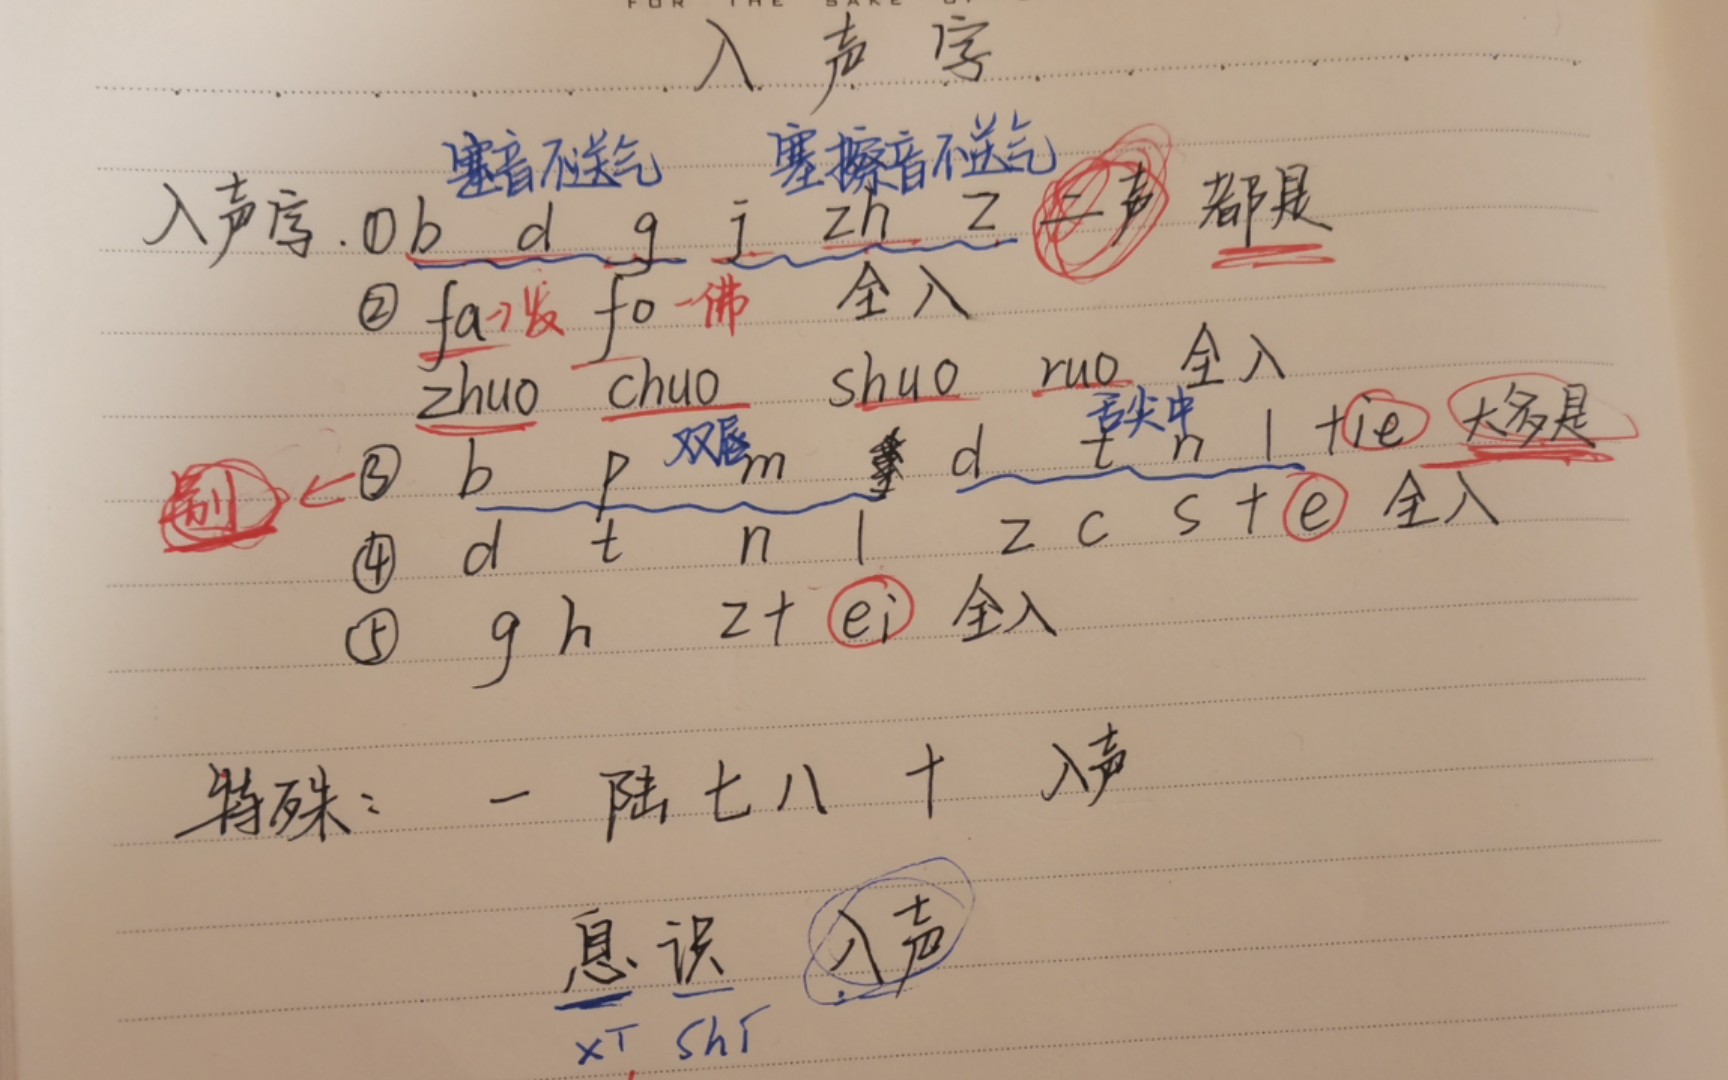 FOR THE SAKE OF
入声字
塞音不送气 塞擦音不送气
入声字. ①b d g j zh z 二声 都是
② fa→发 fo-佛 全入
zhuo chuo shuo ruo 全入
双唇 舌尖中
别 ← ③ b p m d t n l +ie 大多是
④ d t n l z c s + e 全入
⑤ g h z + ei 全入
特殊: 一 陆 七 八 十 入声
息 识 入声